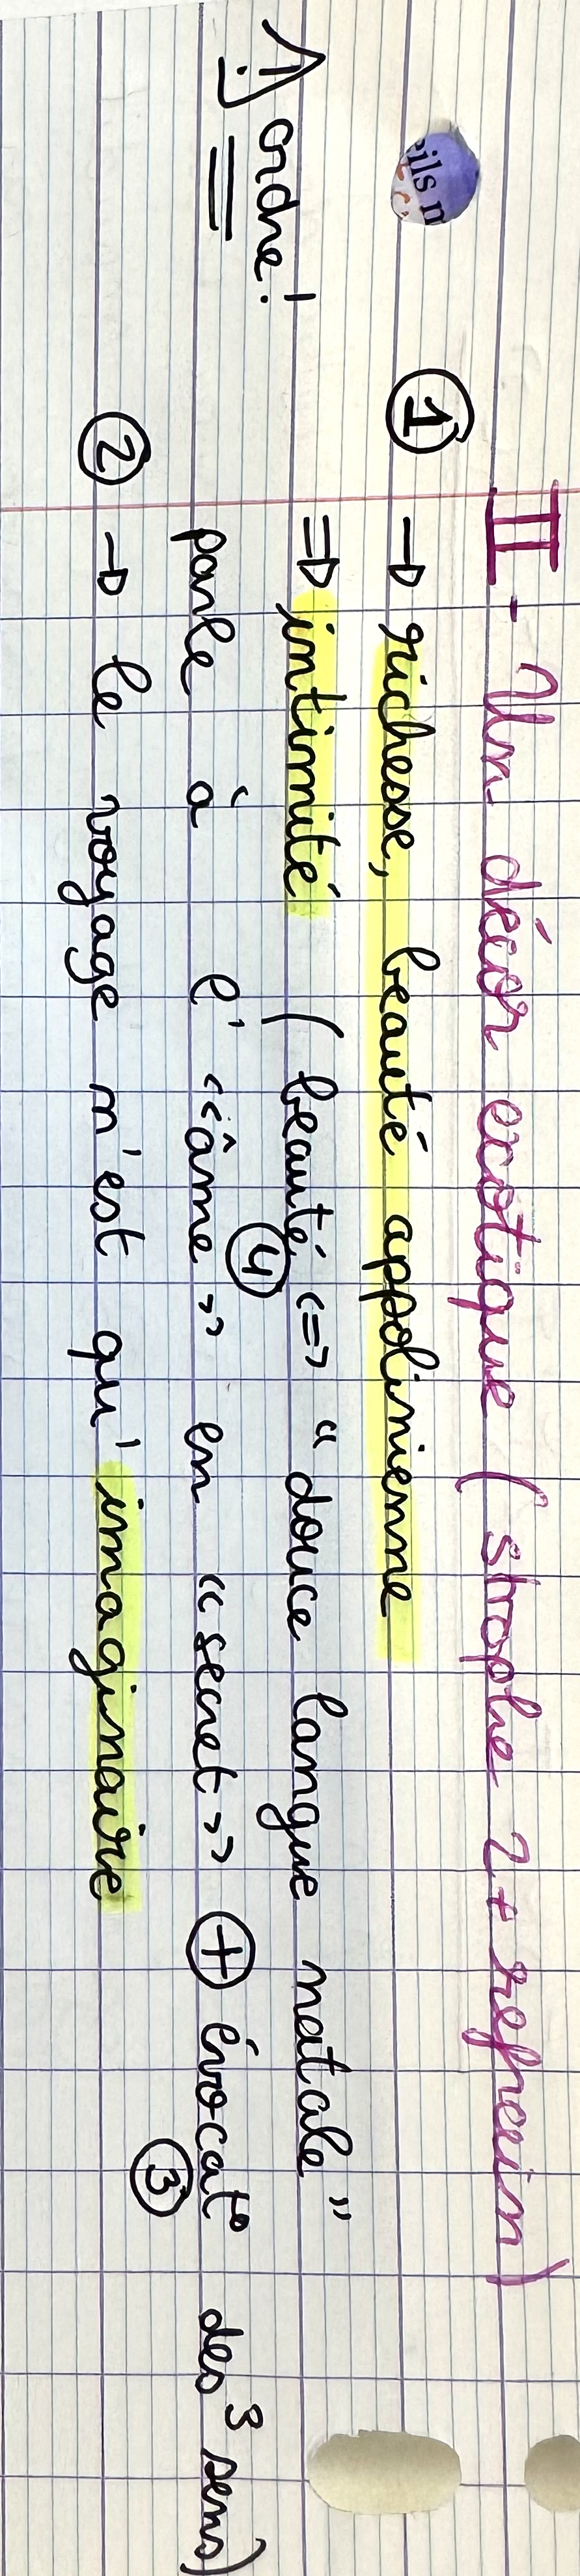 II - Un décor exotique (strophe 2 + refrain)
① → richesse, beauté appolinienne
⚠ ordre! ⇒ intimité (beauté <=> "douce langue natale"
④
parle à l' «âme» en «secret» ⊕ évocat° des 3 sens)
③
② → le voyage n'est qu'imaginaire
eils n